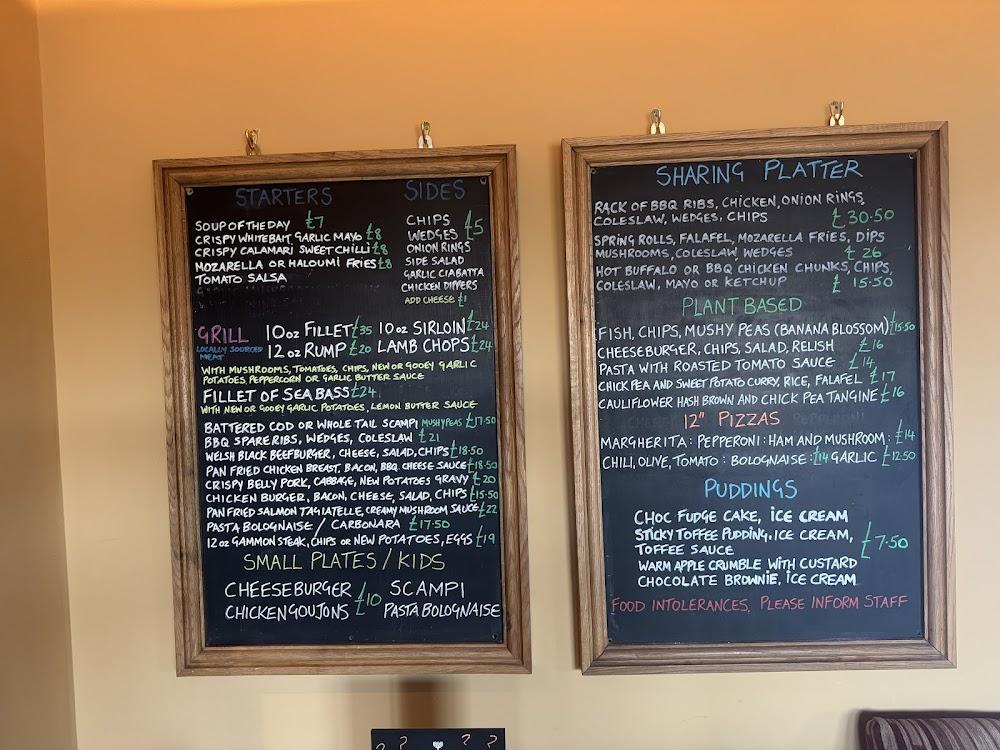 STARTERS
SOUP OF THE DAY £7
CRISPY WHITEBAIT GARLIC MAYO £8
CRISPY CALAMARI SWEET CHILLI £8
MOZARELLA OR HALOUMI FRIES £8
TOMATO SALSA
SIDES
CHIPS
WEDGES £5
ONION RINGS
SIDE SALAD
GARLIC CIABATTA
CHICKEN DIPPERS
ADD CHEESE £1
GRILL 10oz FILLET £35 10oz SIRLOIN £24
LOCALLY SOURCED MEAT 12oz RUMP £20 LAMB CHOPS £24
WITH MUSHROOMS, TOMATOES, CHIPS, NEW OR GOOEY GARLIC
POTATOES, PEPPERCORN OR GARLIC BUTTER SAUCE
FILLET OF SEA BASS £24
WITH NEW OR GOOEY GARLIC POTATOES, LEMON BUTTER SAUCE
BATTERED COD OR WHOLE TAIL SCAMPI MUSHY PEAS £17.50
BBQ SPARE RIBS, WEDGES, COLESLAW £21
WELSH BLACK BEEFBURGER, CHEESE, SALAD, CHIPS £18.50
PAN FRIED CHICKEN BREAST, BACON, BBQ CHEESE SAUCE £18.50
CRISPY BELLY PORK, CABBAGE, NEW POTATOES GRAVY £20
CHICKEN BURGER, BACON, CHEESE, SALAD, CHIPS £15.50
PAN FRIED SALMON TAGLIATELLE, CREAMY MUSHROOM SAUCE £22
PASTA BOLOGNAISE / CARBONARA £17.50
12oz GAMMON STEAK, CHIPS OR NEW POTATOES, EGGS £19
SMALL PLATES / KIDS
CHEESEBURGER £10 SCAMPI
CHICKEN GOUJONS PASTA BOLOGNAISE
SHARING PLATTER
RACK OF BBQ RIBS, CHICKEN, ONION RINGS,
COLESLAW, WEDGES, CHIPS £30.50
SPRING ROLLS, FALAFEL, MOZARELLA FRIES, DIPS
MUSHROOMS, COLESLAW, WEDGES £26
HOT BUFFALO OR BBQ CHICKEN CHUNKS, CHIPS,
COLESLAW, MAYO OR KETCHUP £15.50
PLANT BASED
FISH, CHIPS, MUSHY PEAS (BANANA BLOSSOM) £15.50
CHEESEBURGER, CHIPS, SALAD, RELISH £16
PASTA WITH ROASTED TOMATO SAUCE £14
CHICK PEA AND SWEET POTATO CURRY, RICE, FALAFEL £17
CAULIFLOWER HASH BROWN AND CHICK PEA TANGINE £16
12" PIZZAS
MARGHERITA : PEPPERONI : HAM AND MUSHROOM : £14
CHILI, OLIVE, TOMATO : BOLOGNAISE : £14 GARLIC £12.50
PUDDINGS
CHOC FUDGE CAKE, ICE CREAM
STICKY TOFFEE PUDDING, ICE CREAM,
TOFFEE SAUCE £7.50
WARM APPLE CRUMBLE WITH CUSTARD
CHOCOLATE BROWNIE, ICE CREAM
FOOD INTOLERANCES, PLEASE INFORM STAFF
? ? ? ?